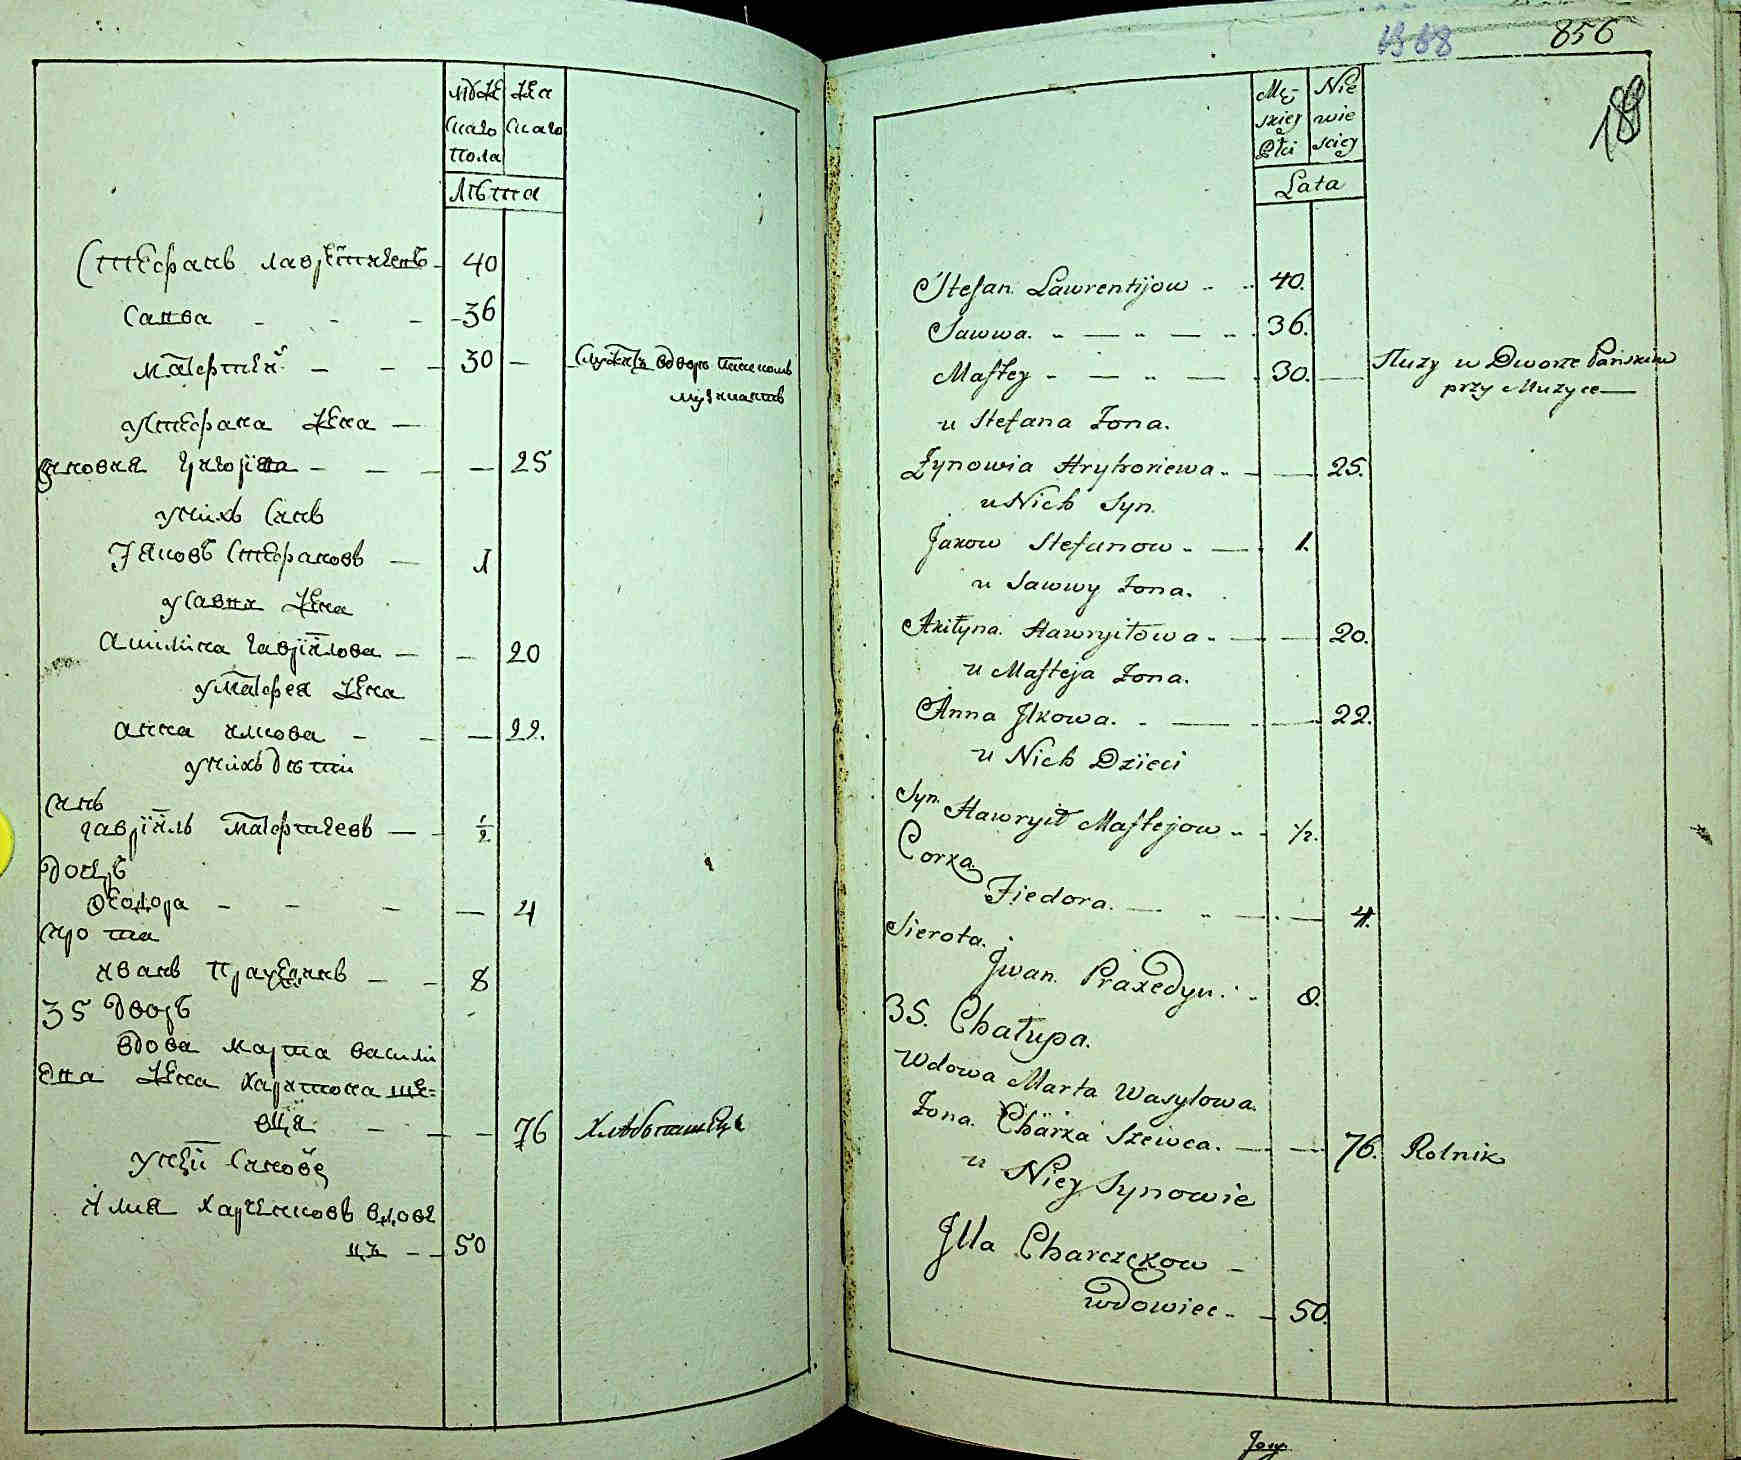 Муже Же
скаго скаго
пола
Лѣта
Стефанъ Лаврентиевъ - 40
Савва - - - 36
Матфтей - - - 30 - Служатъ вдворѣ панскомъ
музикантъ
УСтефана Жена -
Григориева - - - - 25
унихъ Синъ
Іяковъ Стефановъ - 1
уСаввы Жена
Акилина Гавріилова - - 20
уМатфея Жена
Анна Илкова - - - 22.
унихъ дѣти
Синъ
Гавріилъ Матфтиевъ - - 1/2
Дочерь
Феодора - - - - 4
Сирота
Иванъ - - 8
35 Дворъ
Вдова Марта Васили
ева Жена Харитона Ше=
вця - - - 76
унеи Синове
Илия Харченковъ вдове
цъ - - 50
1368 856
189
Mę- Nie
skiey wie
Płci sciey
Lata
Stefan Lawrentijow - - 40.
Sawwa. - — - — - 36.
Maftey - — - — - 30. — Służy w Dworze Pańskim
przy Muzyce —
u Stefana Żona.
Zynowia Hryhoriewa - — — 25.
u Nich Syn.
Jakow Stefanow - — . 1.
u Sawwy Żona.
Akiłyna Hawryiłowa - — — 20.
u Mafteja Żona.
Anna Jlkowa. - — - — 22.
u Nich Dzieci
Syn
Hawryił Maftejow - - 1/2.
Corka
Fiedora. — - — — 4.
Sierota.
Jwan Praxedyn. - 8.
35. Chałupa.
Wdowa Marta Wasylowa.
Żona Charka Szewca. — — 76. Rolnik
u Niey Synowie
Jlla Charczekow -
wdowiec - - 50.